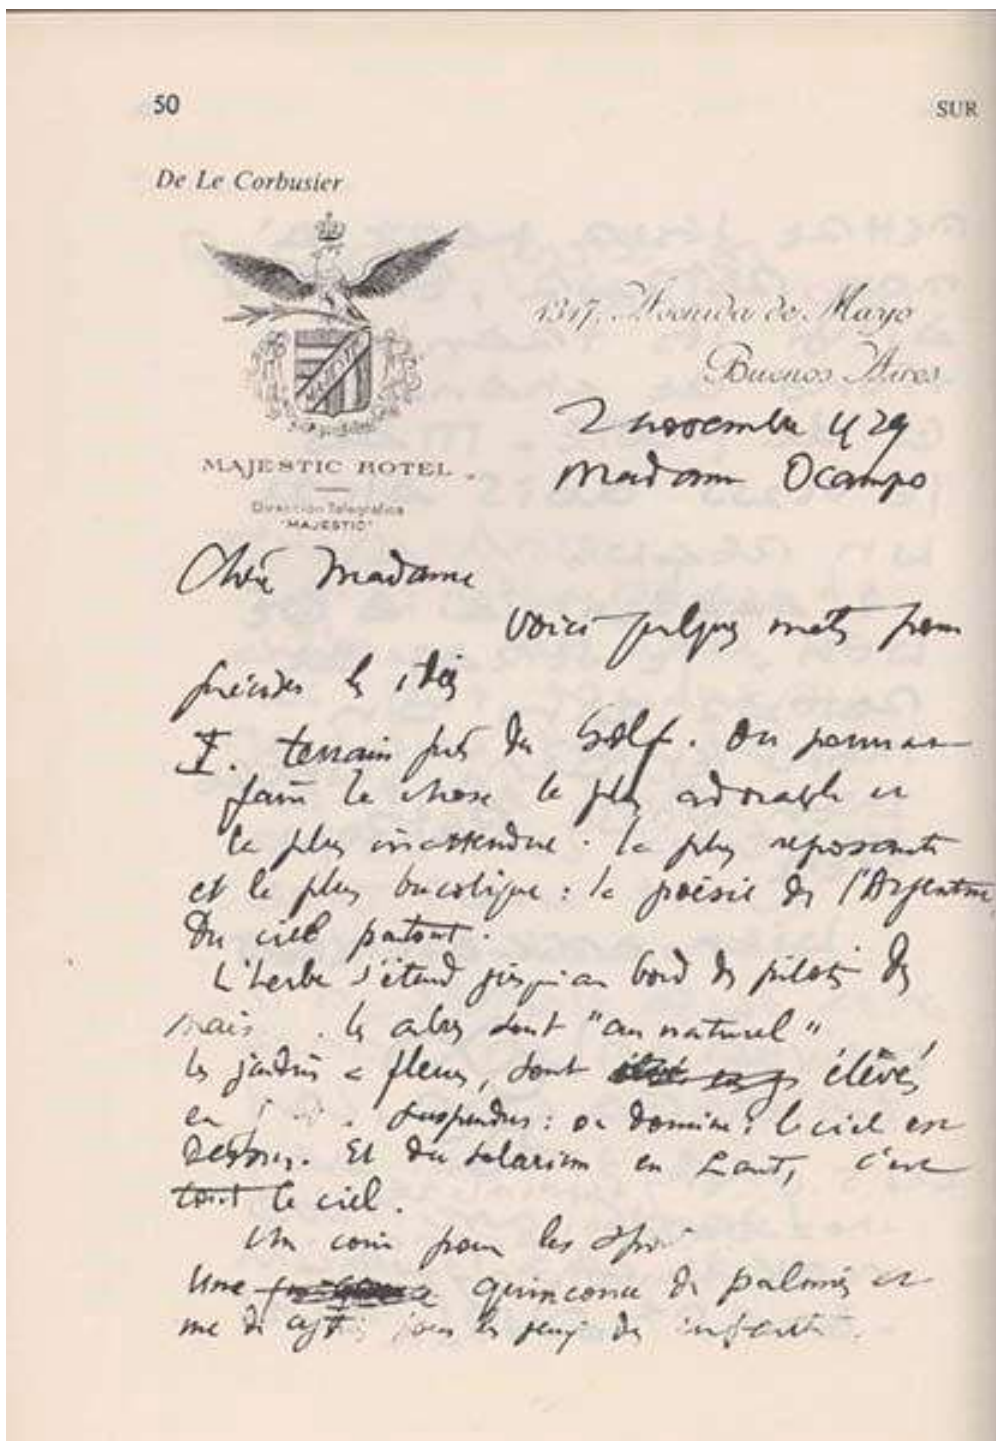 50
SUR
De Le Corbusier
1317. Avenida de Mayo
Buenos Aires
MAJESTIC HOTEL
Direccion Telegráfica
"MAJESTIC"
2 novembre 29
Madame Ocampo
Chère Madame
Voici quelques mots pour
préciser les idées
I. terrain près du Golf. On pourrait
faire la chose la plus adorable et
la plus inattendue. la plus reposante
et la plus bucolique : la poésie de l'Argentine,
Du ciel partout.
L'herbe s'étend jusqu'au bord des pilotis des
les arbres sont "au naturel"
les jardins à fleurs, sont élevés
en suspendus : on domine : le ciel est
Dessus. Et du solarium en haut, c'est
tout le ciel.
Un coin pour les
Une quinconce de palmiers et
pour les jeux des enfants.